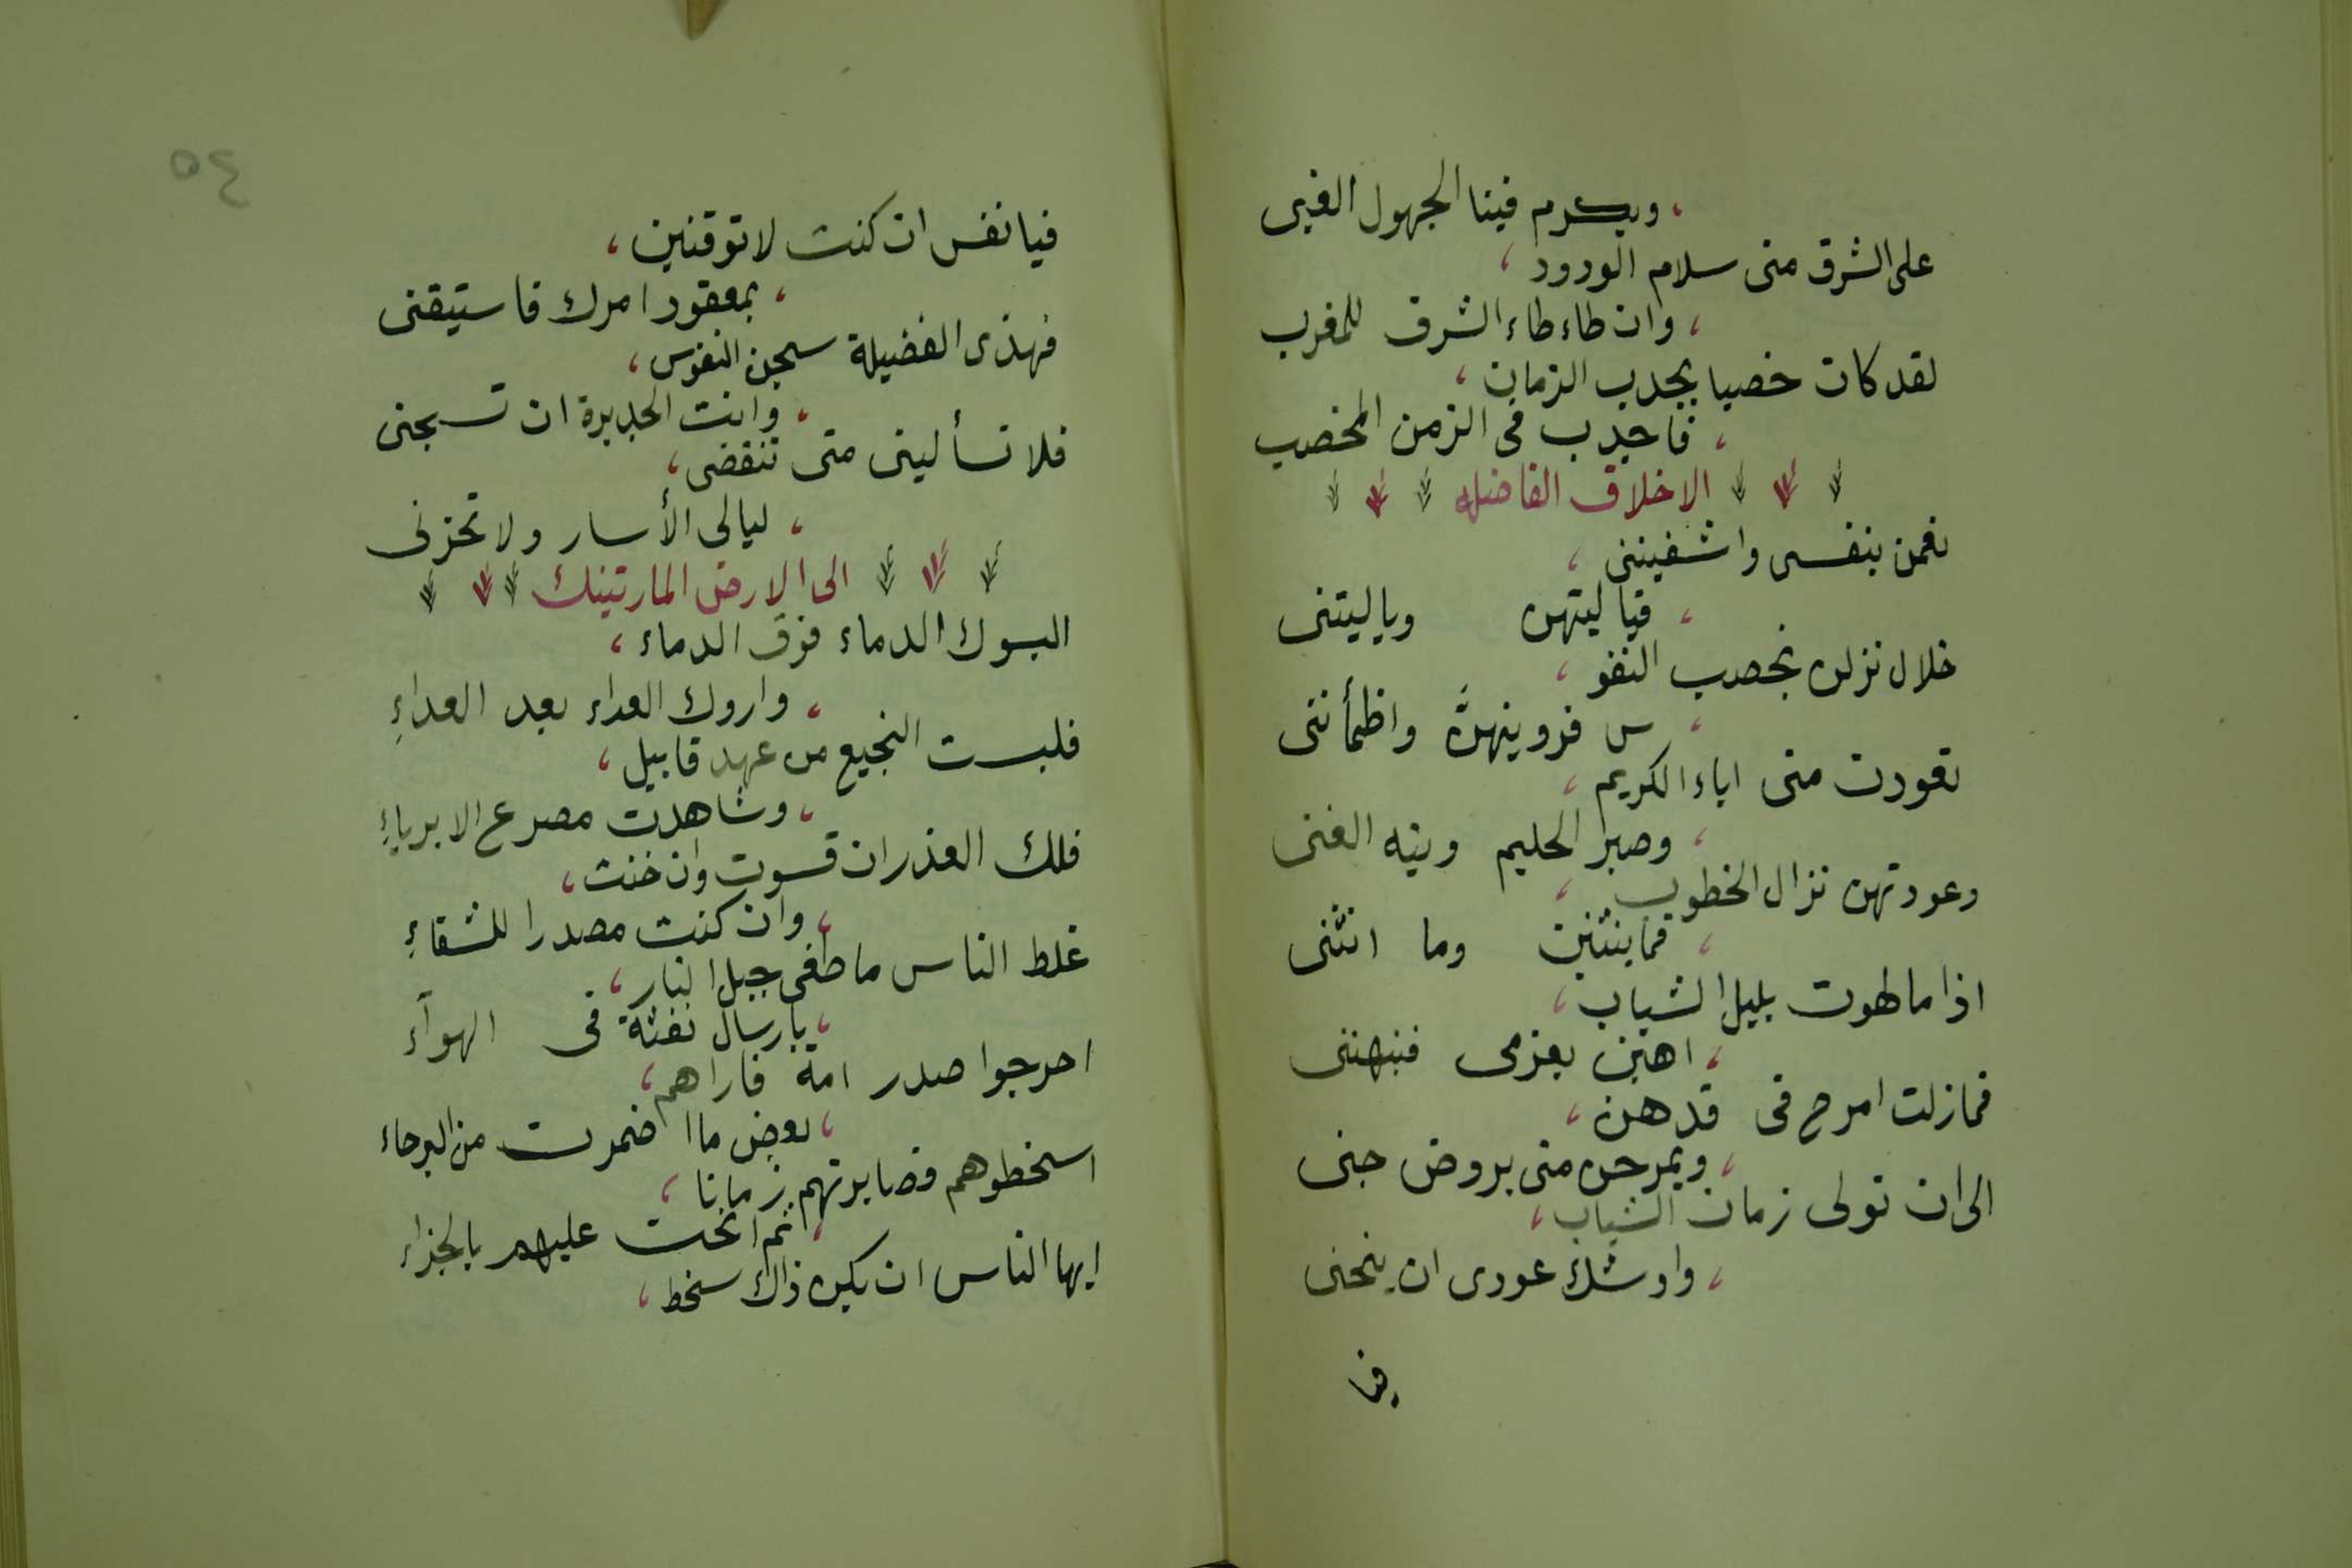 ويكرم فينا الجهول الغبى
على الشرق منى سلام الورود
وان طاء طاء الشرق للمغرب
لقد كان خصيبا بجدب الزمان
فاجدب فى الزمن المخصب
الاخلاق الفاضله
نعمن بنفسى واشقيننى
فيا ليتهن وياليتنى
خلال نزلن بخصب النفو
س فروينهنَّ واظمأننى
تعودت منى اباء الكريم
وصبر الحليم وتيه الغنى
وعودتهن نزال الخطوب
فما ينثنين وما انثنى
اذا ما لهوت بليل الشباب
اهبن بعزمى فنبهننى
فمازلت امرح فى قدهن
ويمرحن منى بروض جنى
الى ان تولى زمان الشباب
واوشك عودى ان ينحنى
فيا
٤٥
فيا نفس ان كنت لا توقنين
بمعقود امرك فاستيقنى
فهذى الفضيلة سجن النفوس
وانت الجديرة ان تسجنى
فلا تسألينى متى تنقضى
ليالى الأسار ولا تحزنى
الى الارض المارتينك
البسوك الدماء فوق الدماء
واروك العداء بعد العداءِ
فلبست النجيع من عهد قابيل
وشاهدت مصرع الابرياءِ
فلك العذر ان قسوت وان خنت
وان كنت مصدرا للشقاءِ
غلط الناس ما طغى جبل النار
بارسال نفثة فى الهوآء
احرجوا صدر امة فاراهم
بعض ما اضمرت من البرحاء
اسخطوهم فصابرتهم زمانا
ثم انحت عليهم بالجزاء
ايها الناس ان يكن ذاك سخط